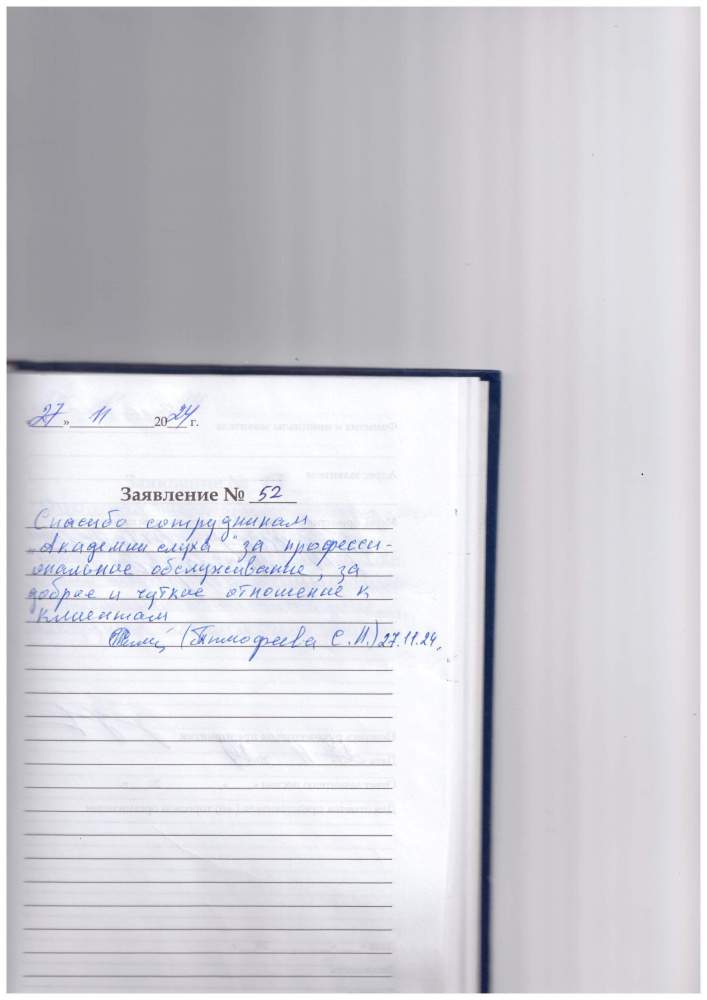 27 » 11 2024 г.
Заявление № 52
Спасибо сотрудникам
„Академии слуха" за професси-
ональное обслуживание, за
доброе и чуткое отношение к
клиентам
(Тимофеева С.И.) 27.11.24.